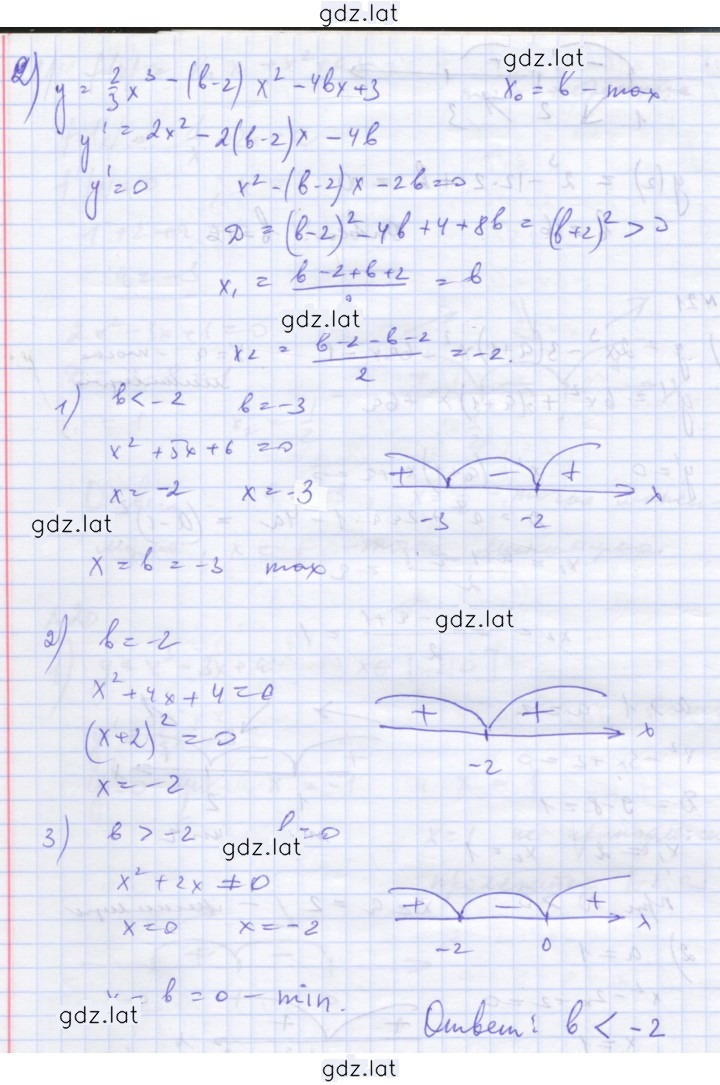 gdz.lat
2) y = 2/3 x³ - (b-2) x² - 4bx + 3
gdz.lat
x₀ = b - max
y' = 2x² - 2(b-2)x - 4b
y' = 0 x² - (b-2)x - 2b = 0
D = (b-2)² - 4b + 4 + 8b = (b+2)² > 0
x₁ = (b-2+b+2)/ = b
gdz.lat
x₂ = (b-2-b-2)/2 = -2.
1) b < -2 b = -3
x² + 5x + 6 = 0
x = -2 x = -3
+ - + x
-3 -2
gdz.lat
x = b = -3 max
gdz.lat
2) b = -2
x² + 4x + 4 = 0
(x+2)² = 0
x = -2
+ + x
-2
3) b > -2 = 0
gdz.lat
x² + 2x = 0
x = 0 x = -2
+ - + x
-2 0
= b = 0 - min.
gdz.lat
Ответ: b < -2
gdz.lat